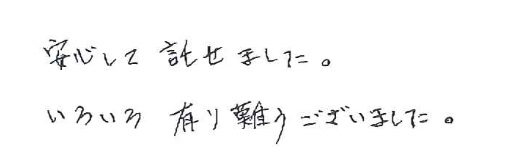 安心して 託せました。
いろいろ 有り難うございました。